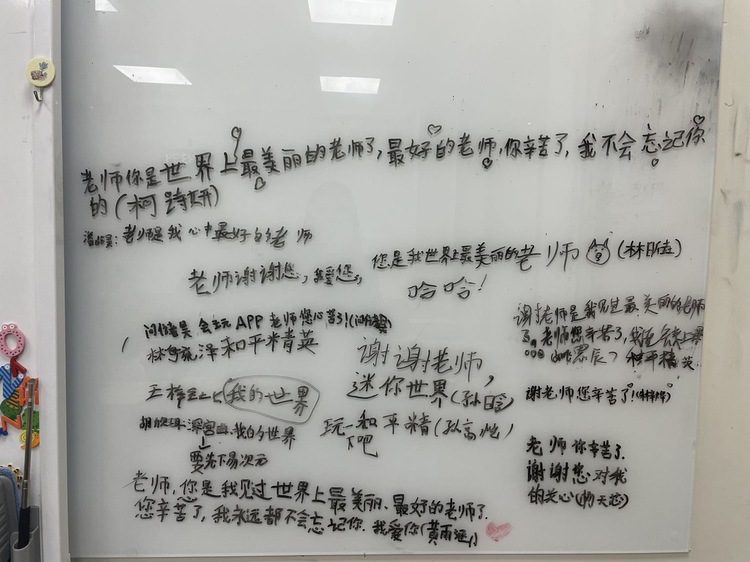 老师你是世界上最美丽的老师了,最好的老师,你辛苦了,我不会忘记你
的(柯诗妍)
老师是我心中最好的老师
老师谢谢您,我爱您,
您是我世界上最美丽的老师(林
哈哈!
会玩APP 老师您心苦了!
泽和平精英
谢谢老师,
迷你世界(孙晗)
谢老师是我见过最美丽的老师
了,老师您辛苦了,我
和平精英
王梓 我的世界
谢老师您辛苦了!
玩一和平精(孙高恺)
下吧
深宫 我的世界
要先下易次元
老师你辛苦了.
谢谢您对我
的关心
老师,你是我见过世界上最美丽、最好的老师了.
您辛苦了,我永远都不会忘记你.我爱你(黄雨涵)